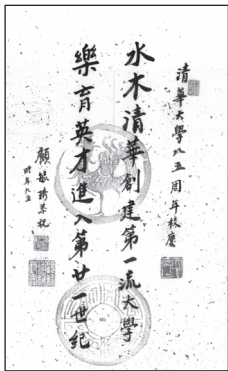 清華大學八五周年校慶
水木清華創建第一流大學
樂育英才進入第廿一世紀
顧毓琇恭祝
時年九五